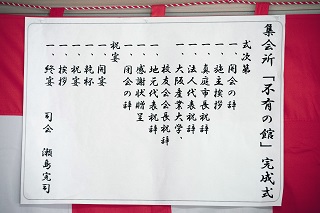 集会所「不有の館」完成式
式次第
一、開会の辞
一、施主挨拶
一、真庭市長祝辞
一、法人代表祝辞
一、大阪産業大学、
校友会会長祝辞
一、地元代表祝辞
一、感謝状贈呈
一、閉会の辞
祝宴
一、開宴
一、乾杯
一、祝宴
一、挨拶
一、終宴
司会 瀬島完司